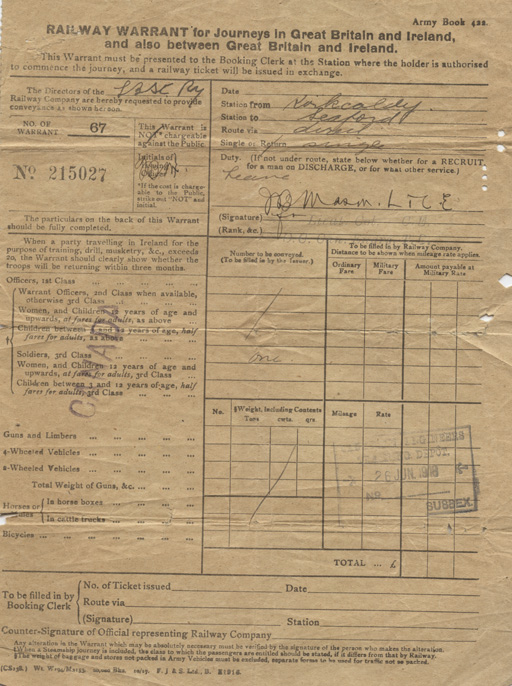 Army Book 422.
RAILWAY WARRANT for Journeys in Great Britain and Ireland,
and also between Great Britain and Ireland.
This Warrant must be presented to the Booking Clerk at the Station where the holder is authorised
to commence the journey, and a railway ticket will be issued in exchange.
The Directors of the
Railway Company are hereby requested to provide
conveyance as shown hereon.
NO. OF
WARRANT
67
This Warrant is
NOT chargeable
against the Public.
Initials of
Issuing
Officer
*If the cost is charge-
able to the Public,
strike out "NOT" and
initial.
No 215027
Date
Station from Kirkcaldy
Station to Seaford
Route via direct
Single or Return single
Duty. (If not under route, state below whether for a RECRUIT,
for a man on DISCHARGE, or for what other service.)
Leave
(Signature)
(Rank, &c.)
The particulars on the back of this Warrant
should be fully completed.
When a party travelling in Ireland for the
purpose of training, drill, musketry, &c., exceeds
20, the Warrant should clearly show whether the
troops will be returning within three months.
Number to be conveyed.
(To be filled in by the Issuer.)
To be filled in by Railway Company.
Distance to be shown when mileage rate applies.
Ordinary
Fare
Military
Fare
Amount payable at
Military Rate
Officers, 1st Class
Warrant Officers, 2nd Class when available,
otherwise 3rd Class
Women, and Children 12 years of age and
upwards, at fares for adults, as above
Children between 3 and 12 years of age, half
fares for adults, as above
Soldiers, 3rd Class
one
Women, and Children 12 years of age and
upwards, at fares for adults, 3rd Class
Children between 3 and 12 years of age, half
fares for adults, 3rd Class
No.
§Weight, including Contents
Tons
cwts.
qrs.
Mileage
Rate
Guns and Limbers
4-Wheeled Vehicles
2-Wheeled Vehicles
Total Weight of Guns, &c.
Horses or
Mules
In horse boxes
In cattle trucks
Bicycles
ENGINEERS
DEPOT.
26 JUN. 1918
NO.
SUSSEX
TOTAL ... £
To be filled in by
Booking Clerk
No. of Ticket issued
Date
Route via
(Signature)
Station
Counter-Signature of Official representing Railway Company
Any alteration in the Warrant which may be absolutely necessary must be verified by the signature of the person who makes the alteration.
If a Steamship journey is included, the class to which the passengers are entitled should be stated, if it differs from that by Railway.
§The weight of baggage and stores not packed in Army Vehicles must be excluded, separate forms to be used for traffic not so packed.